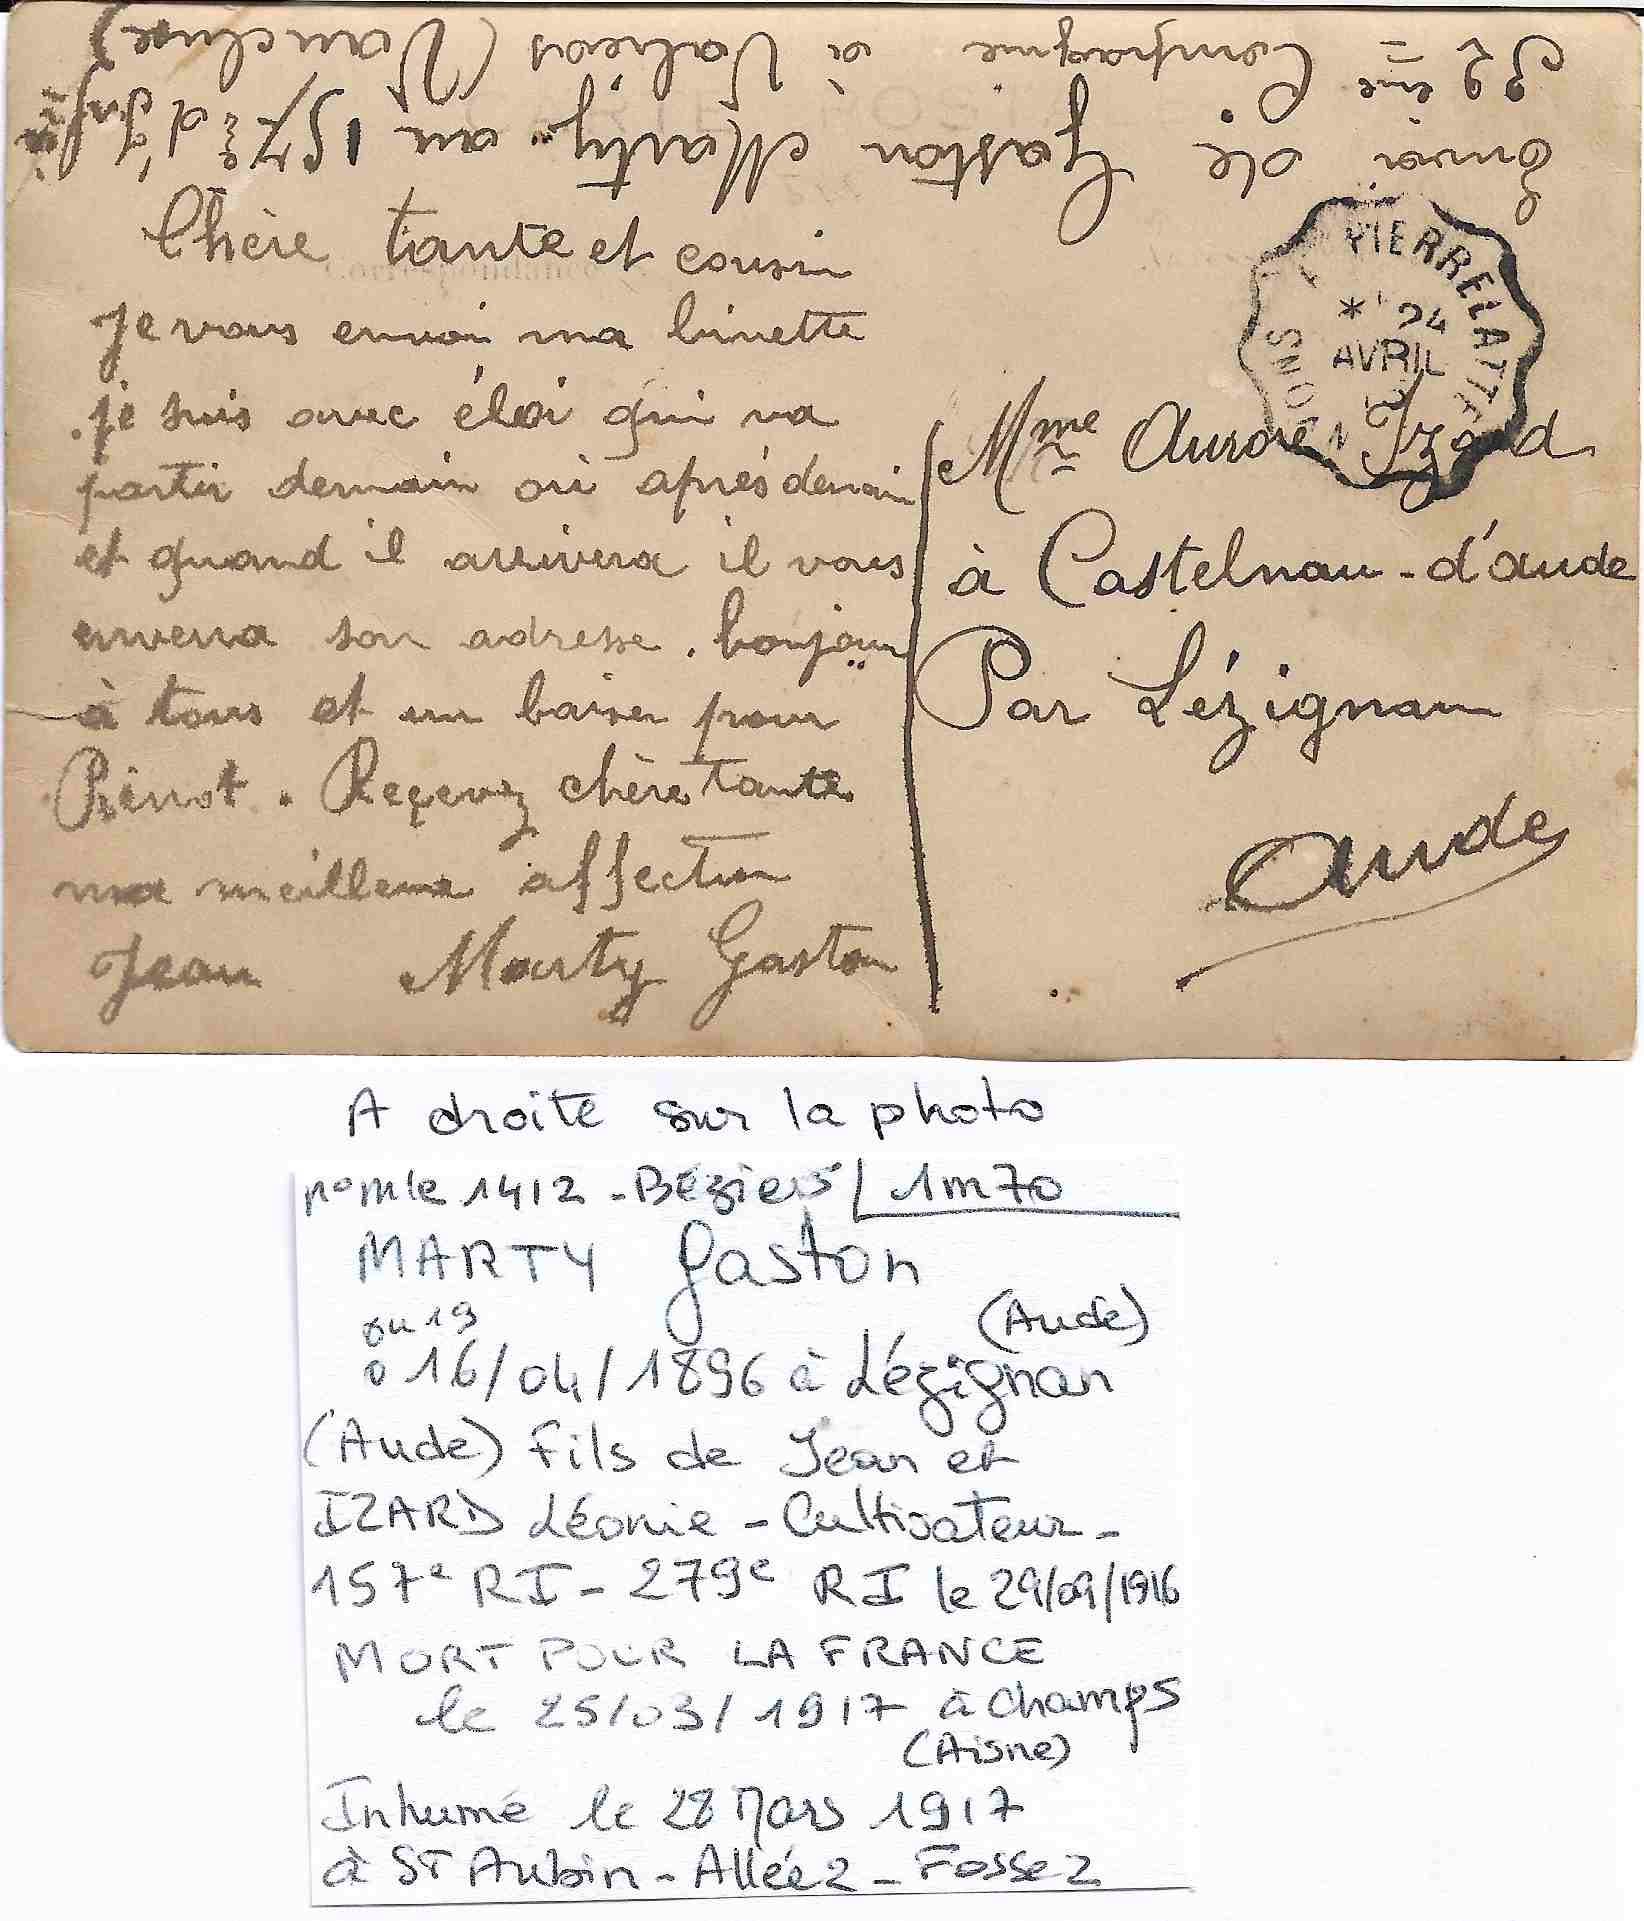 Envoi de Gaston Marty au 157e d'Infie
32ème Compagnie à Valréas (Vaucluse)
CARTE POSTALE
Correspondance
Chère tante et cousin
Je vous envoi ma binette
je suis avec éloi qui va
partir demain ou après demain
et quand il arrivera il vous
enverra son adresse. bonjour
à tous et un baiser pour
Pierrot. Reçevez chère tante
ma meilleure affection
Jean Marty Gaston
PIERRELATTE
* 24
AVRIL
NYONS
Mme Aurore Izard
à Castelnau-d'aude
Par Lézignan
Aude
A droite sur la photo
n° mle 1412 - Béziers / 1m70
MARTY Gaston
ou 19
o 16/04/1896 à Lézignan (Aude)
(Aude) Fils de Jean et
IZARD Léonie - Cultivateur -
157e RI - 279e RI le 29/09/1916
MORT POUR LA FRANCE
le 25/03/1917 à Champs
(Aisne)
Inhumé le 28 Mars 1917
à ST Aubin - Allée 2 - Fosse 2